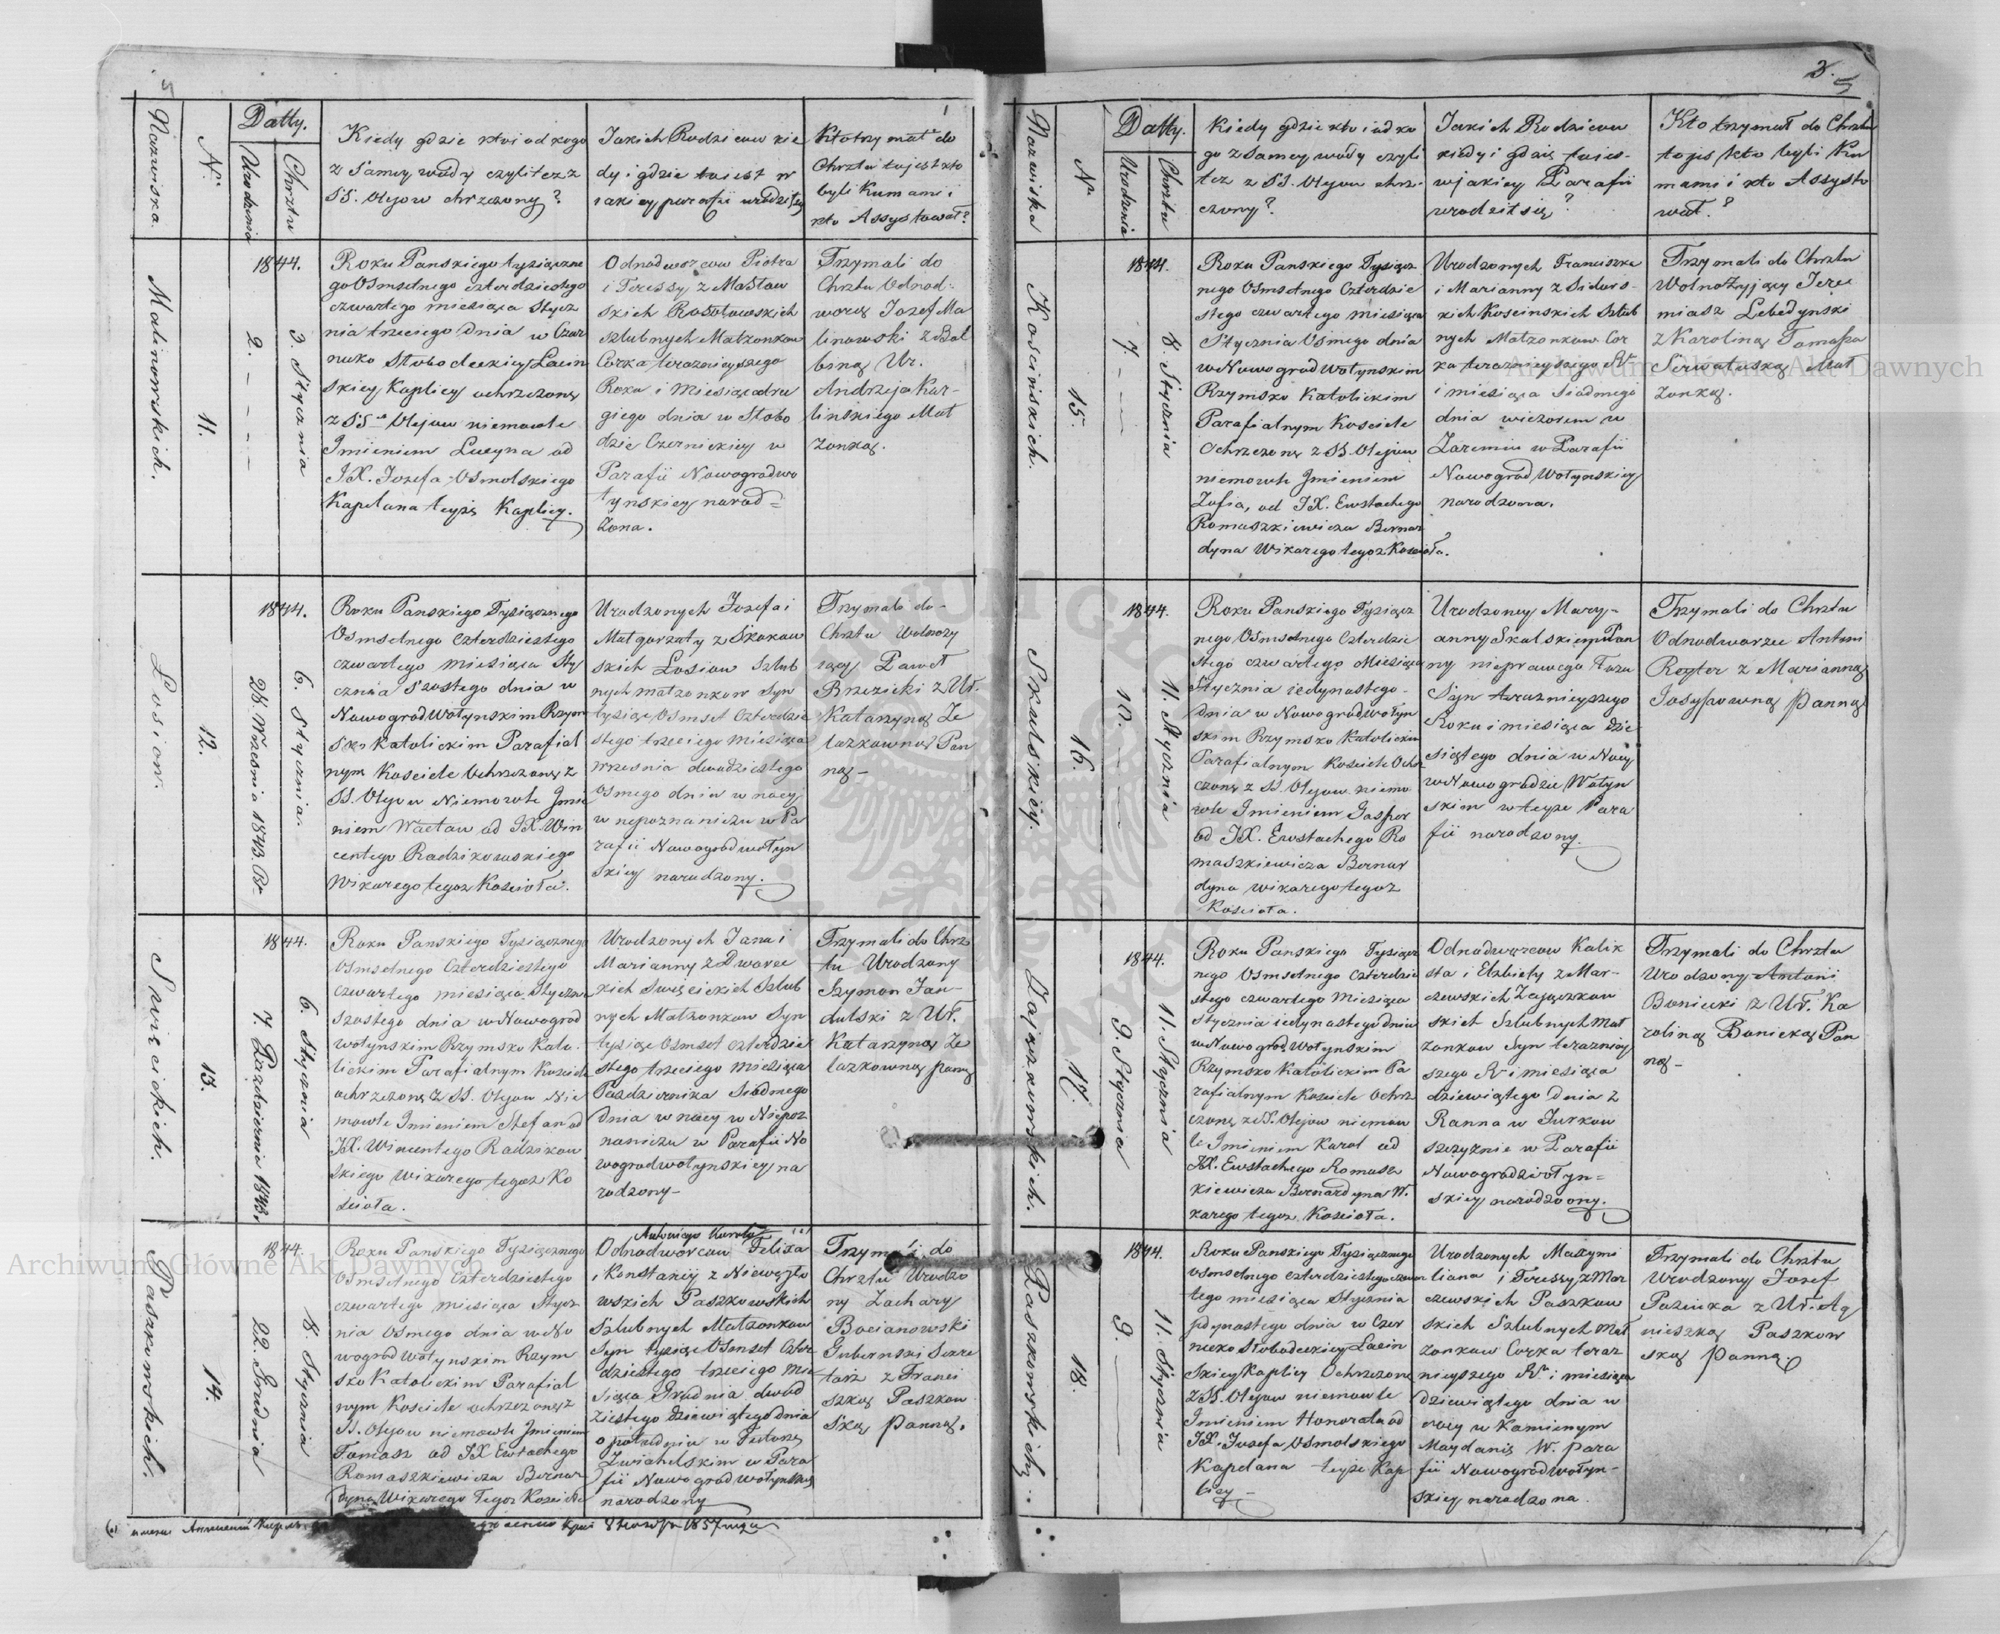 5
Nazwiska.
N.
Datty.
Urodzenia
Chrztu
Kiedy gdzie kto i od kogo
z Samey wody czyli też z
SS. Olejow chrzczony?
Jakich Rodzicow kie
dy i gdzie to iest w
iakiey parafii urodził się
Kto trzymał do
Chrztu to jest kto
byli Kumami i
kto Assystował?
Malinowskich.
11.
1844.
2.
3. Stycznia
Roku Panskiego tysiączne
go Osmsetnego czterdziestego
czwartego miesiąca Stycz
nia trzeciego dnia w Czer
nicko Słobodeckiey Łacin
skiey Kaplicy ochrzczoną
z SS. Olejow niemowle
Jmieniem Lucyna od
JX. Jozefa Osmolskiego
Kapelana teyże Kaplicy.
Odnodworcow Piotra
i Teressy z Masław
skich
szlubnych Małżonkow
Corka terazniejszego
Roku i Miesiąca dru
giego dnia w Słobo
dzie Czernickiey w
Parafii Nowogradwo
łynskiey narod=
zona.
Trzymali do
Chrztu Odnod-
worcy Jozef Ma
linowski z Bal
biną Ur.
Andrzeja Kar-
linskiego Mał
żonką.
Łosiow.
12.
1844.
28. Wrzesnia 1843. Rr.
6. Stycznia.
Roku Panskiego Tysiącznego
Osmsetnego Czterdziestego
czwartego miesiąca Sty
cznia szostego dnia w
Nowogrod Wołynskim Rzym
sko Katolickim Parafial
nym Kosciele Ochrzczony z
SS. Olejow Niemowle Jmie
niem Wacław od JX. Win
centego Radzikowskiego
Wikarego tegoż Koscioła.
Urodzonych Jozefa i
Małgorzaty z Skokow
skich Łosiow Szlub
nych małżonkow Syn
tysiąc Osmset Czterdzie
stego trzeciego Miesiąca
wrzesnia dwudziestego
Osmego dnia w nocy
w nepoznaniczu w Pa
rafii Nowogradwołyn
skiey narodzony.
Trzymali do-
Chrztu Wolnoży
iący Paweł
Brzezicki z Uł.
Katarzyną Że
lazkowną Pan
ną-
Swięcickich.
13.
1844.
7. Pazdziernika 1843.
6. Stycznia
Roku Panskiego Tysiącznego
Osmsetnego Czterdziestego
czwartego miesiąca Stycznia
szostego dnia w Nowogrod
wołynskim Rzymsko Kato-
lickim Parafialnym Kosciele
ochrzczony z SS. Olejow Nie
mowle Jmieniem Stefan od
JX. Wincentego Radzikow
skiego Wikarego tegoż Ko
scioła.
Urodzonych Jana i
Marianny z Dworec
kich Swięcickich Szlub
nych Małżonkow Syn
tysiąc Osmset czterdzie
stego trzeciego Miesiąca
Pazdziernika Siodmego
dnia w nocy w Niepoz
naniczu w Parafii No
wogradwołynskiey na
rodzony-
Trzymali do Chrz
tu Urodzony
Szymon Jan-
dulski z Uł.
Katarzyną Że
lazkowną panną
Paszkowskich.
14.
1844.
22. Grudnia
8. Stycznia
Roku Panskiego Tysiącznego
Osmsetnego Czterdziestego
czwartego miesiąca Stycz
nia Osmego dnia w No
wogrod Wołynskim Rzym
sko Katolickim Parafial
nym Kosciele ochrzczony z
SS. Olejow niemowle Jmieniem
Tomasz od JX Ewstachego
Romaszkiewicza Bernar
dyna Wikarego Tegoż Koscioła
Antoniego Karola
Odnodworcow Felixa
i Konstancij z Niewęgło
wskich Paszkowskich
Szlubnych Małżonkow
Syn tysiąc Osmset Czter
dziestego trzeciego Mie
siąca Grudnia dwud
ziestego dziewiątego dnia
o południu w
Zwiahelskim w Para
fii Nowogrod wołynskiey
narodzony
Trzymali do
Chrztu Urodzo
ny Zachary
Bocianowski
Gubernski Sekre
tarz z Franci
szką Paszkow
ską Panną.
1857 года
3.
5
Nazwiska
N.
Datty.
Urodzenia
Chrztu
Kiedy gdzie kto i od ko
go z Samey wody czyli
też z SS. Olejow chrz-
czony?
Jakich Rodzicow
kiedy i gdzie to ies-
w jakiey Parafii
urodził się?
Kto trzymał do Chrztu
to jes kto byli Ku
mami i kto Assysto
wał?
Koscinskich.
15.
1844.
7.
8. Stycznia
Roku Panskiego Tysiącz
nego Osmsetnego Czterdzie
stego czwartego miesiąca
Stycznia Osmego dnia
w Nowogrod Wołynskim
Rzymsko Katolickim
Parafialnym Kosciele
Ochrzczona z SS. Olejow
niemowle Jmieniem
Zofia, od JX. Ewstachego
Romaszkiewicza Bernar
dyna Wikarego tegoż Kościoła.
Urodzonych Franciszka
i Marianny z Sidors-
kich Koscinskich Szlub
nych Małżonkow Cor
ka terazniejszego Rr.
i miesiąca Siodmego
dnia wieczorem w
Zaremiu w Parafii
Nowogrod Wołynskiey
narodzona.
Trzymali do Chrztu
Wolno żyjący Jere
miasz Lebedynski
z Karoliną Tomasza
Serwatuską Mał
żonką.
Skulskiey.
16.
1844.
10.
11. Stycznia
Roku Panskiego Tysiącz
nego Osmsetnego Czterdzie
stego czwartego Miesiąca
Stycznia iedynastego-
dnia w Nowogrod Wołyn
skim Rzymsko Katolickim
Parafialnym Kosciele Ochrz
czony z SS. Olejow niemo
wle Jmieniem Gasper
od JX. Ewstachego Ro
maszkiewicza Bernar
dyna wikarego tegoż
Kościoła.
Urodzoney Mary-
anny Skulskiey Pan
ny nieprawego Łoża
Syn terazniejszego
Roku i miesiąca dzie
siątego dnia w Nocy
w Nowogrodzie Wołyn
skim w teyże Para
fii narodzony.
Trzymali do Chrztu
Odnodworzec Antoni
Reytor z Marianną
Josypowną Panną
Zajączkowskich.
17.
1844.
9. Stycznia
11. Stycznia
Roku Panskiego Tysiącz
nego Osmsetnego Czterdzie
stego czwartego Miesiąca
Stycznia iedynastego dnia
w Nowogrod Wołynskim
Rzymsko Katolickim Pa
rafialnym Kosciele Ochrz
czony z SS. Olejow niemow
le Jmieniem Karol od
JX. Ewstachego Romasz
kiewicza Bernardyna Wi
karego tegoż Kościoła.
Odnodworcow Kalix
sta i Elzbiety z Mar-
czewskich Zajączkow
skich Szlubnych Mał
żonkow Syn terazniey
szego Rr i miesiąca
dziewiątego dnia z
Ranna w Jurkow
szczyznie w Parafii
Nowogrodzwołyn=
skiey narodzoony.
Trzymali do Chrztu
Urodzony Antoni
Boniecki z Uł. Ka
roliną Boniecką Pan
ną-
Paszkowskich.
18.
1844.
9.
11. Stycznia
Roku Panskiego Tysiącznego
osmsetnego czterdziestego czwar
tego miesiąca Stycznia
jedynastego dnia w Czer
nicko Słobodeckiey Łacin
skiey Kaplicy Ochrzczona
z SS. Olejow niemowle
Jmieniem Honorata od
JX. Jozefa Osmolskiego
Kapelana teyże Kap
licy-
Urodzonych Maxymi
liana i Teressy z Mar
czewskich Paszkow
skich Szlubnych Mał
żonkow Corka teraz
nieyszego Rr. i miesiąca
dziewiątego dnia w
nocy w Kamiennym
Maydanie W. para
fii Nowogrod wołyn-
skiey narodzona.
Trzymali do Chrztu
Urodzony Jozef
Pazinka z Uł. Ag
nieszką Paszkow
ską Panną
Archiwum Główne Akt Dawnych
Archiwum Główne Akt Dawnych